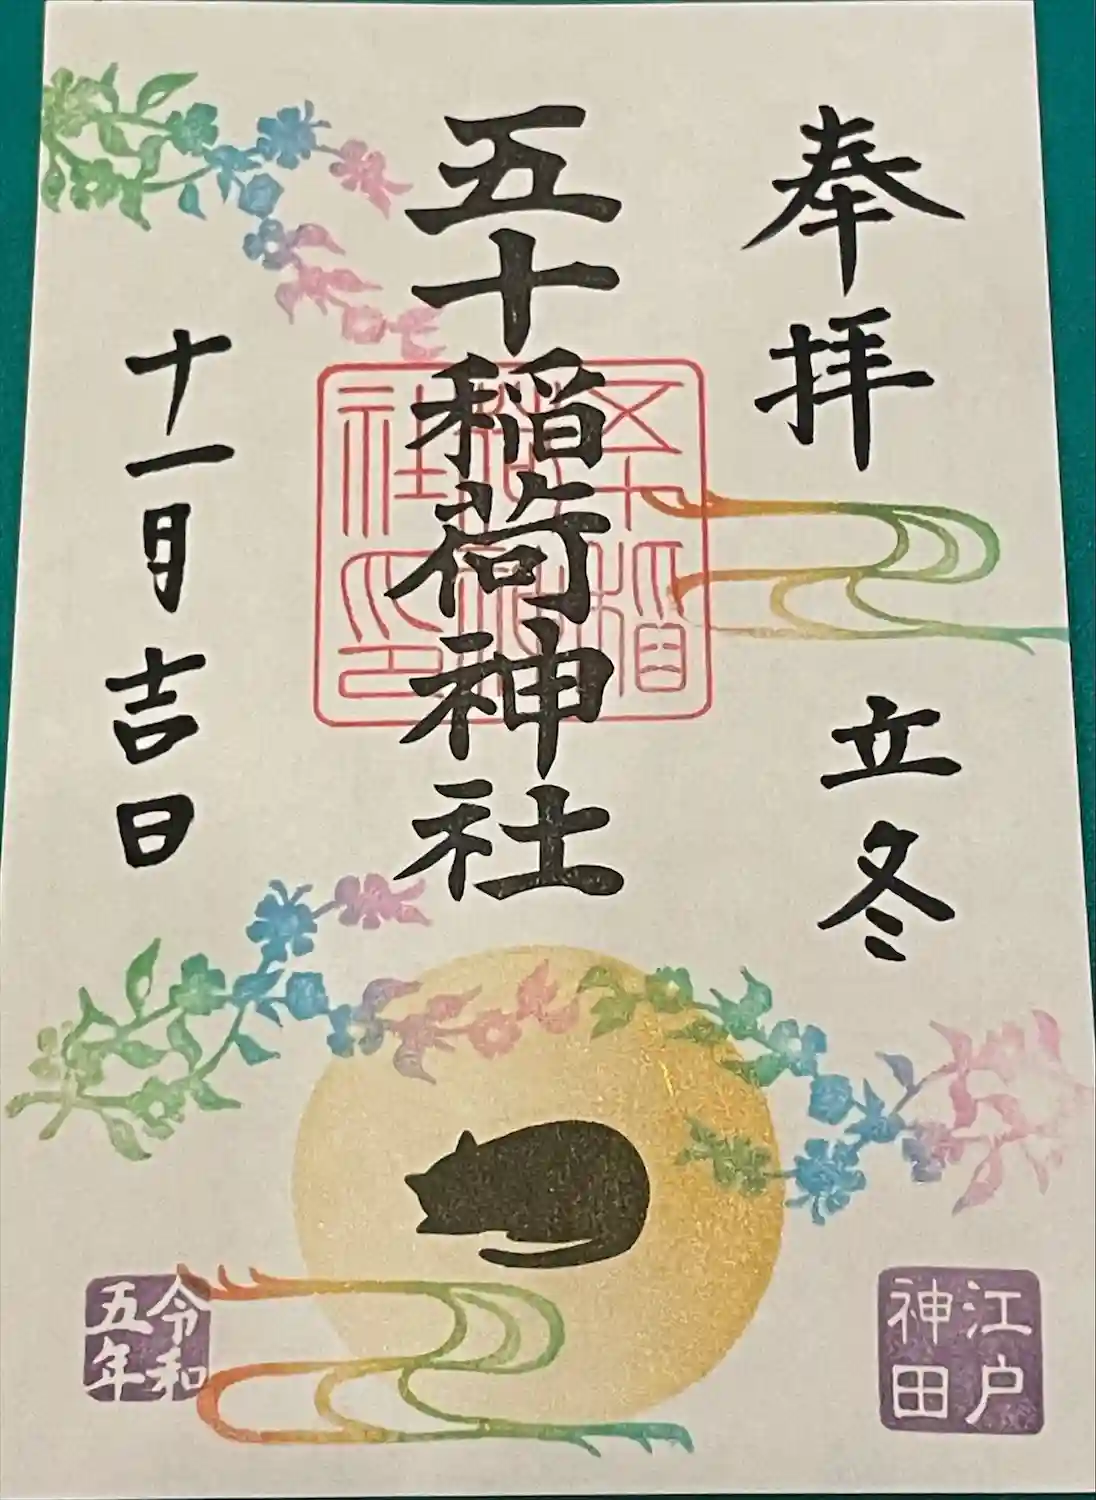 奉拝
立冬
五十稲荷神社
五十稲荷神社印
十一月吉日
江戸神田
令和五年